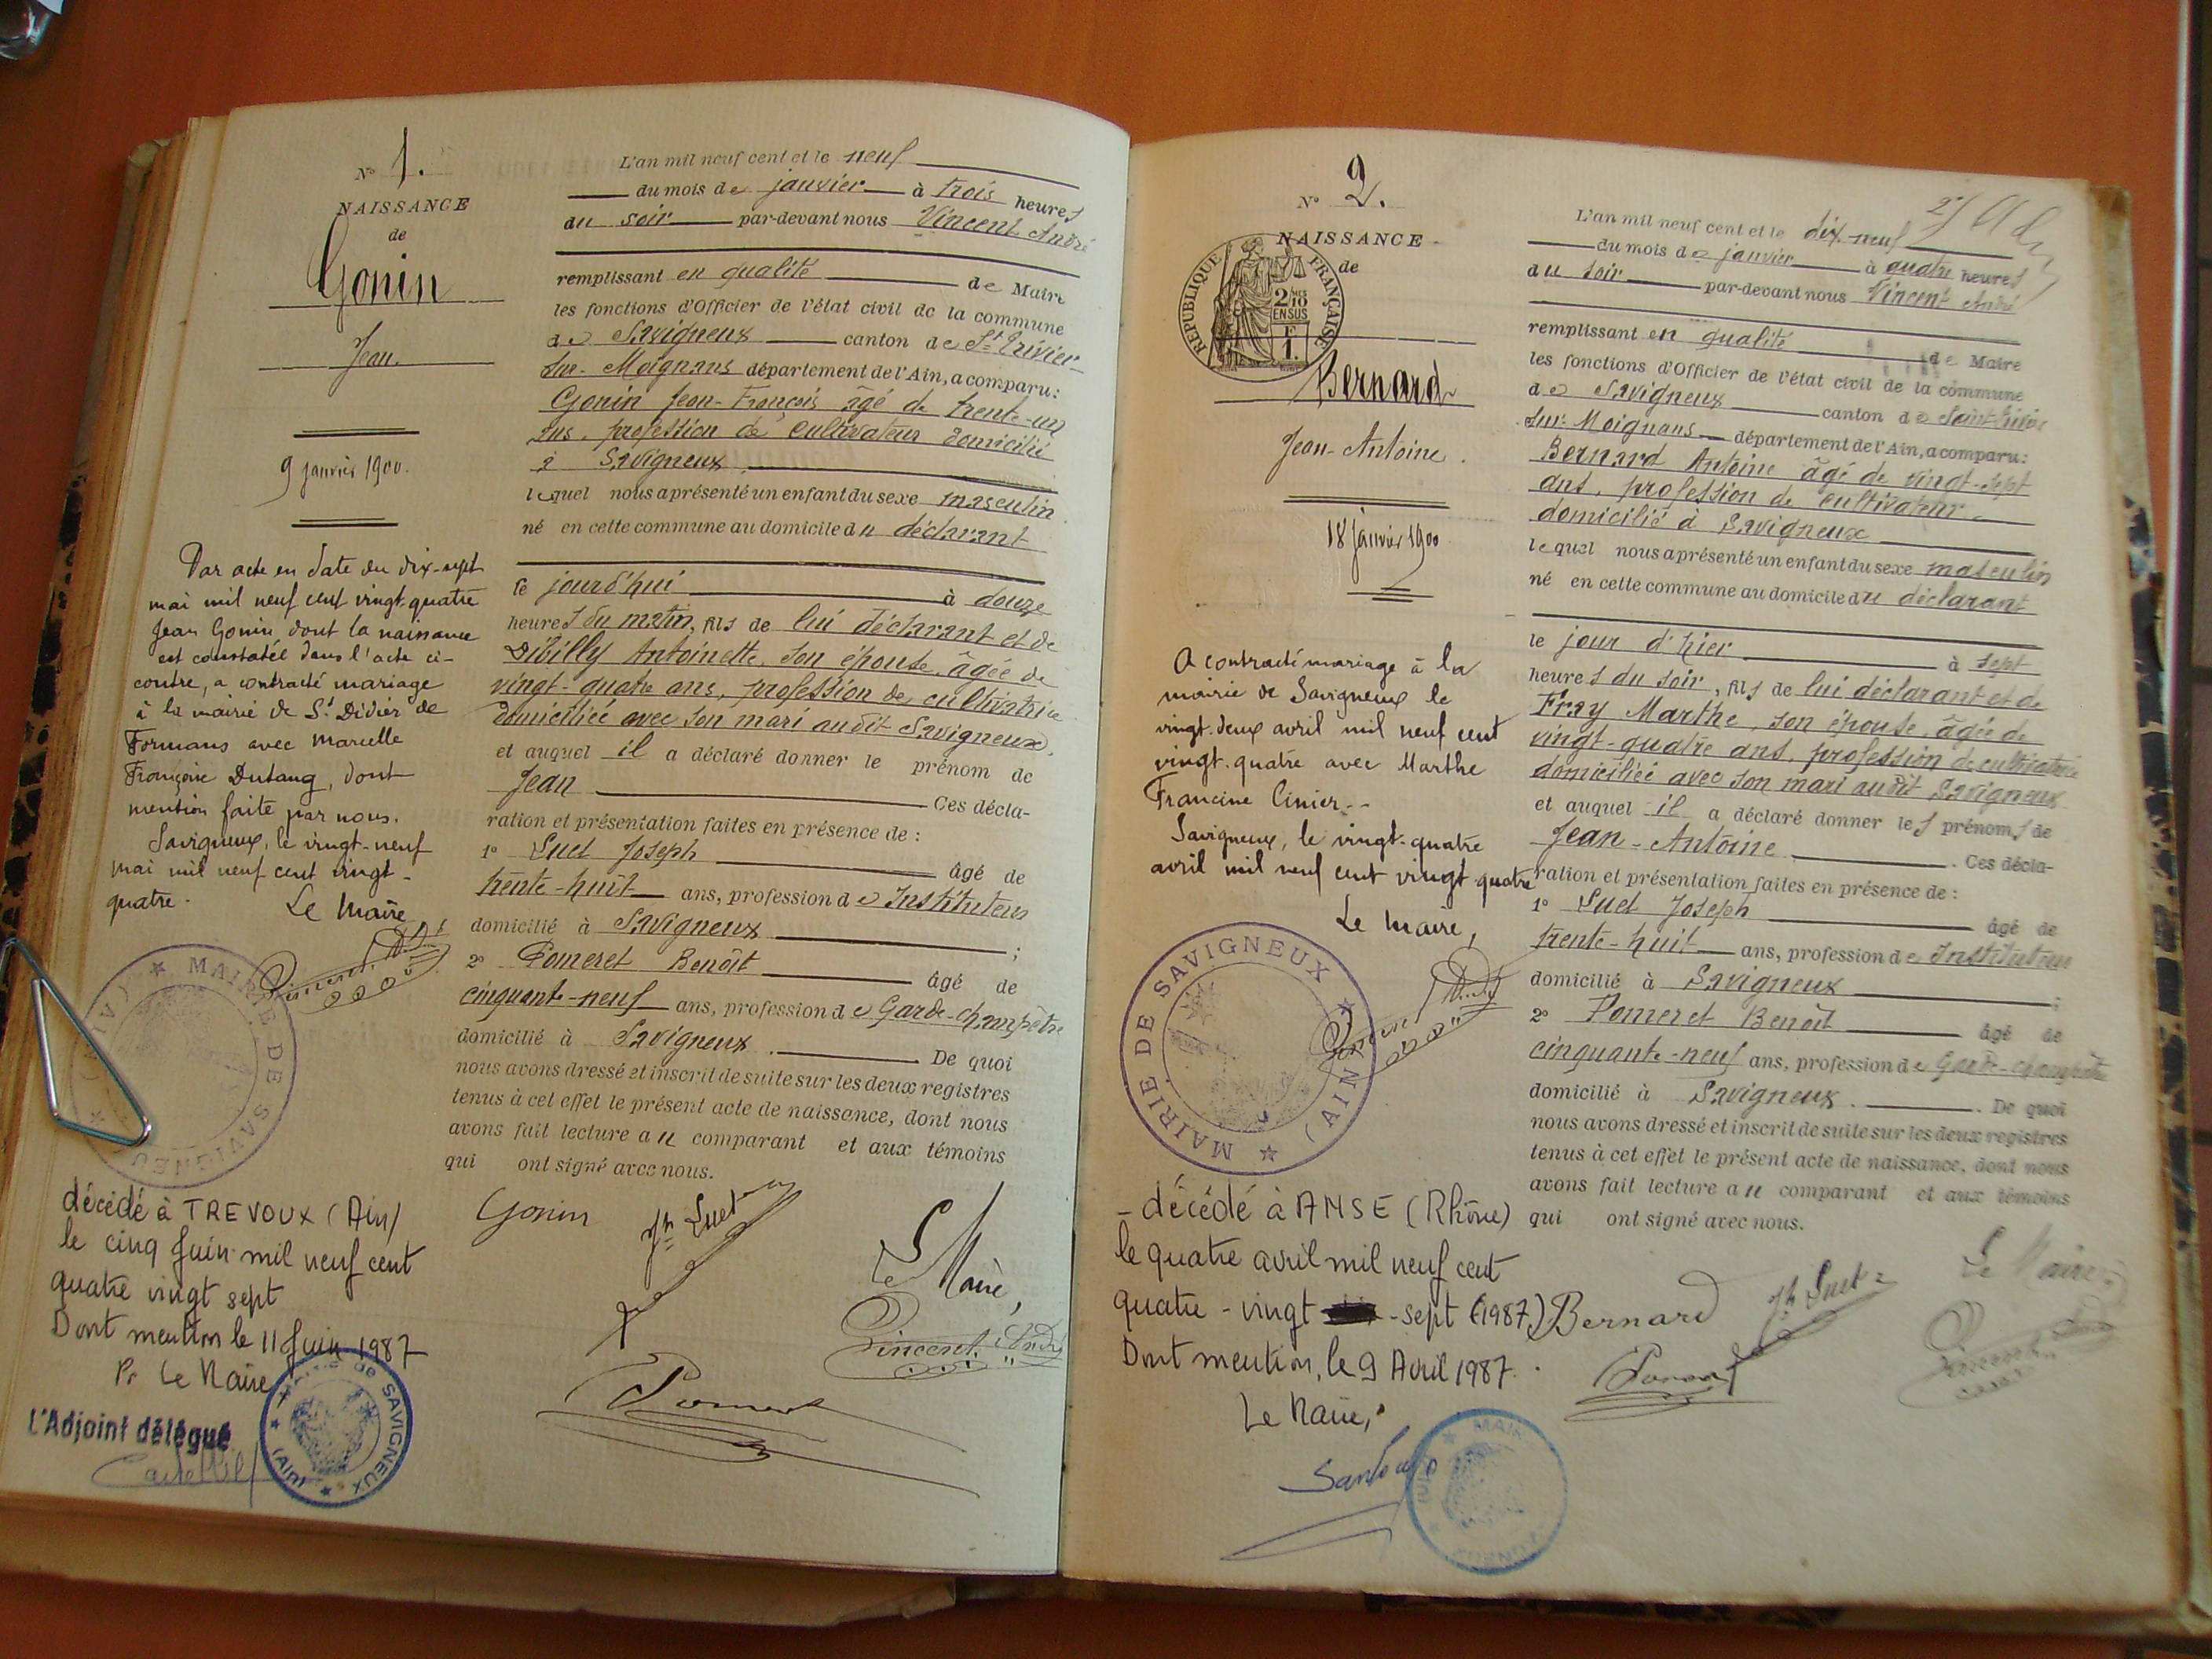 N° 1.
NAISSANCE
de
Gonin
Jean.
9 janvier 1900.
Par acte en date du dix-sept
mai mil neuf cent vingt-quatre
Jean Gonin, dont la naissance
est constatée dans l'acte ci-
contre, a contracté mariage
à la mairie de St Didier de
Formans avec Marcelle
Françoise Dutang, dont
mention faite par nous.
Savigneux, le vingt-neuf
mai mil neuf cent vingt-
quatre.
Le Maire
Vincent André
MAIRIE DE SAVIGNEU
décédé à TREVOUX (Ain)
le cinq Juin mil neuf cent
quatre vingt sept
Dont mention le 11 Juin 1987
Pr Le Maire
L'Adjoint délégué
Mairie de SAVIGNEUX (Ain)
L'an mil neuf cent et le neuf
du mois de janvier à trois heures
du soir par-devant nous Vincent André
remplissant en qualité de Maire
les fonctions d'Officier de l'état civil de la commune
de Savigneux canton de St Trivier-
sur-Moignans département de l'Ain, a comparu:
Gonin Jean-François âgé de trente-un
ans, profession de cultivateur domicilié
à Savigneux
lequel nous a présenté un enfant du sexe masculin
né en cette commune au domicile du déclarant
le jourd'hui à douze
heures du matin, fils de lui déclarant et de
Dibilly Antoinette, son épouse, âgée de
vingt-quatre ans, profession de cultivatrice
domiciliée avec son mari au dit Savigneux,
et auquel il a déclaré donner le prénom de
Jean Ces décla-
ration et présentation faites en présence de :
1° Suet Joseph âgé de
trente-huit ans, profession de Instituteur
domicilié à Savigneux ;
2° Pomeret Benoît âgé de
cinquante-neuf ans, profession de Garde-champêtre
domicilié à Savigneux. De quoi
nous avons dressé et inscrit de suite sur les deux registres
tenus à cet effet le présent acte de naissance, dont nous
avons fait lecture au comparant et aux témoins
qui ont signé avec nous.
Gonin Jh Suet
Le Maire,
Vincent André
Pomeret
N° 2.
NAISSANCE
de
RÉPUBLIQUE FRANÇAISE
2/10 MES
EN SUS
1 F.
Bernard
Jean-Antoine.
18 janvier 1900
A contracté mariage à la
mairie de Savigneux le
vingt-deux avril mil neuf cent
vingt-quatre avec Marthe
Francine Cinier.-
Savigneux, le vingt-quatre
avril mil neuf cent vingt quatre
Le Maire,
Vincent André
MAIRIE DE SAVIGNEUX (AIN)
- décédé à ANSE (Rhône)
le quatre avril mil neuf cent
quatre-vingt -sept (1987)
Dont mention, le 9 Avril 1987.
Le Maire,
L'an mil neuf cent et le dix-neuf
du mois de janvier à quatre heures
du soir par-devant nous Vincent André
remplissant en qualité de Maire
les fonctions d'Officier de l'état civil de la commune
de Savigneux canton de Saint-Trivier
sur-Moignans département de l'Ain, a comparu:
Bernard Antoine âgé de vingt-sept
ans, profession de cultivateur
domicilié à Savigneux
lequel nous a présenté un enfant du sexe masculin
né en cette commune au domicile du déclarant
le jour d'hier à sept
heures du soir, fils de lui déclarant et de
Fray Marthe, son épouse, âgée de
vingt-quatre ans, profession de cultivatrice
domiciliée avec son mari au dit Savigneux
et auquel il a déclaré donner les prénoms de
Jean-Antoine. Ces décla-
ration et présentation faites en présence de :
1° Suet Joseph âgé de
trente-huit ans, profession de Instituteur
domicilié à Savigneux ;
2° Pomeret Benoît âgé de
cinquante-neuf ans, profession de Garde-champêtre
domicilié à Savigneux. De quoi
nous avons dressé et inscrit de suite sur les deux registres
tenus à cet effet le présent acte de naissance, dont nous
avons fait lecture au comparant et aux témoins
qui ont signé avec nous.
Bernard Jh Suet
Le Maire
Vincent André
Pomeret